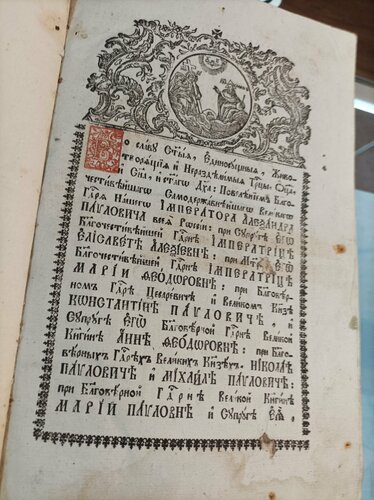 Во славу Ст҃ыѧ, Единосущныѧ, Живо-
творѧщіѧ и Нераздѣлимыѧ Трⷪ҇цы, Оц҃а,
и Сн҃а, и ст҃агѡ Дх҃а: Повелѣніемъ Благо-
честивѣйшагѡ Самодержавнѣйшагѡ Великагѡ
Гдⷭ҇рѧ Нашегѡ ІМПЕРАТОРА АЛЕѮАНДРА
ПАѴЛОВИЧА всеѧ Рѡссіи: при Сꙋпрꙋгѣ ЕГѠ
Благочестивѣйшей Гдⷭ҇рнѣ ІМПЕРАТРИЦѢ
ЕЛІСАВЕТѢ АЛЕѮІЕВНѢ: при Мт҃ри ЕГѠ
Благочестивѣйшей Гдⷭ҇рнѣ ІМПЕРАТРИЦѢ
МАРІИ ѲЕОДОРОВНѢ: при Благовѣр-
номъ Гдⷭ҇рѣ Цесаревичѣ и Великомъ Кнѧзѣ
КОНСТАНТІНѢ ПАѴЛОВИЧѢ, и
Сꙋпрꙋгѣ ЕГѠ Благовѣрной Гдⷭ҇рнѣ Великой
Кнѧгинѣ АННѢ ѲЕОДОРОВНѢ: при Благо-
вѣрныхъ Гдⷭ҇рѣхъ Великихъ Кнѧзехъ НІКОЛАѢ
ПАѴЛОВИЧѢ и МІХАИЛѢ ПАѴЛОВИЧѢ:
при Благовѣрной Гдⷭ҇рнѣ Великой Кнѧгинѣ
МАРІИ ПАѴЛОВНѢ и Сꙋпрꙋгѣ ЕѦ,